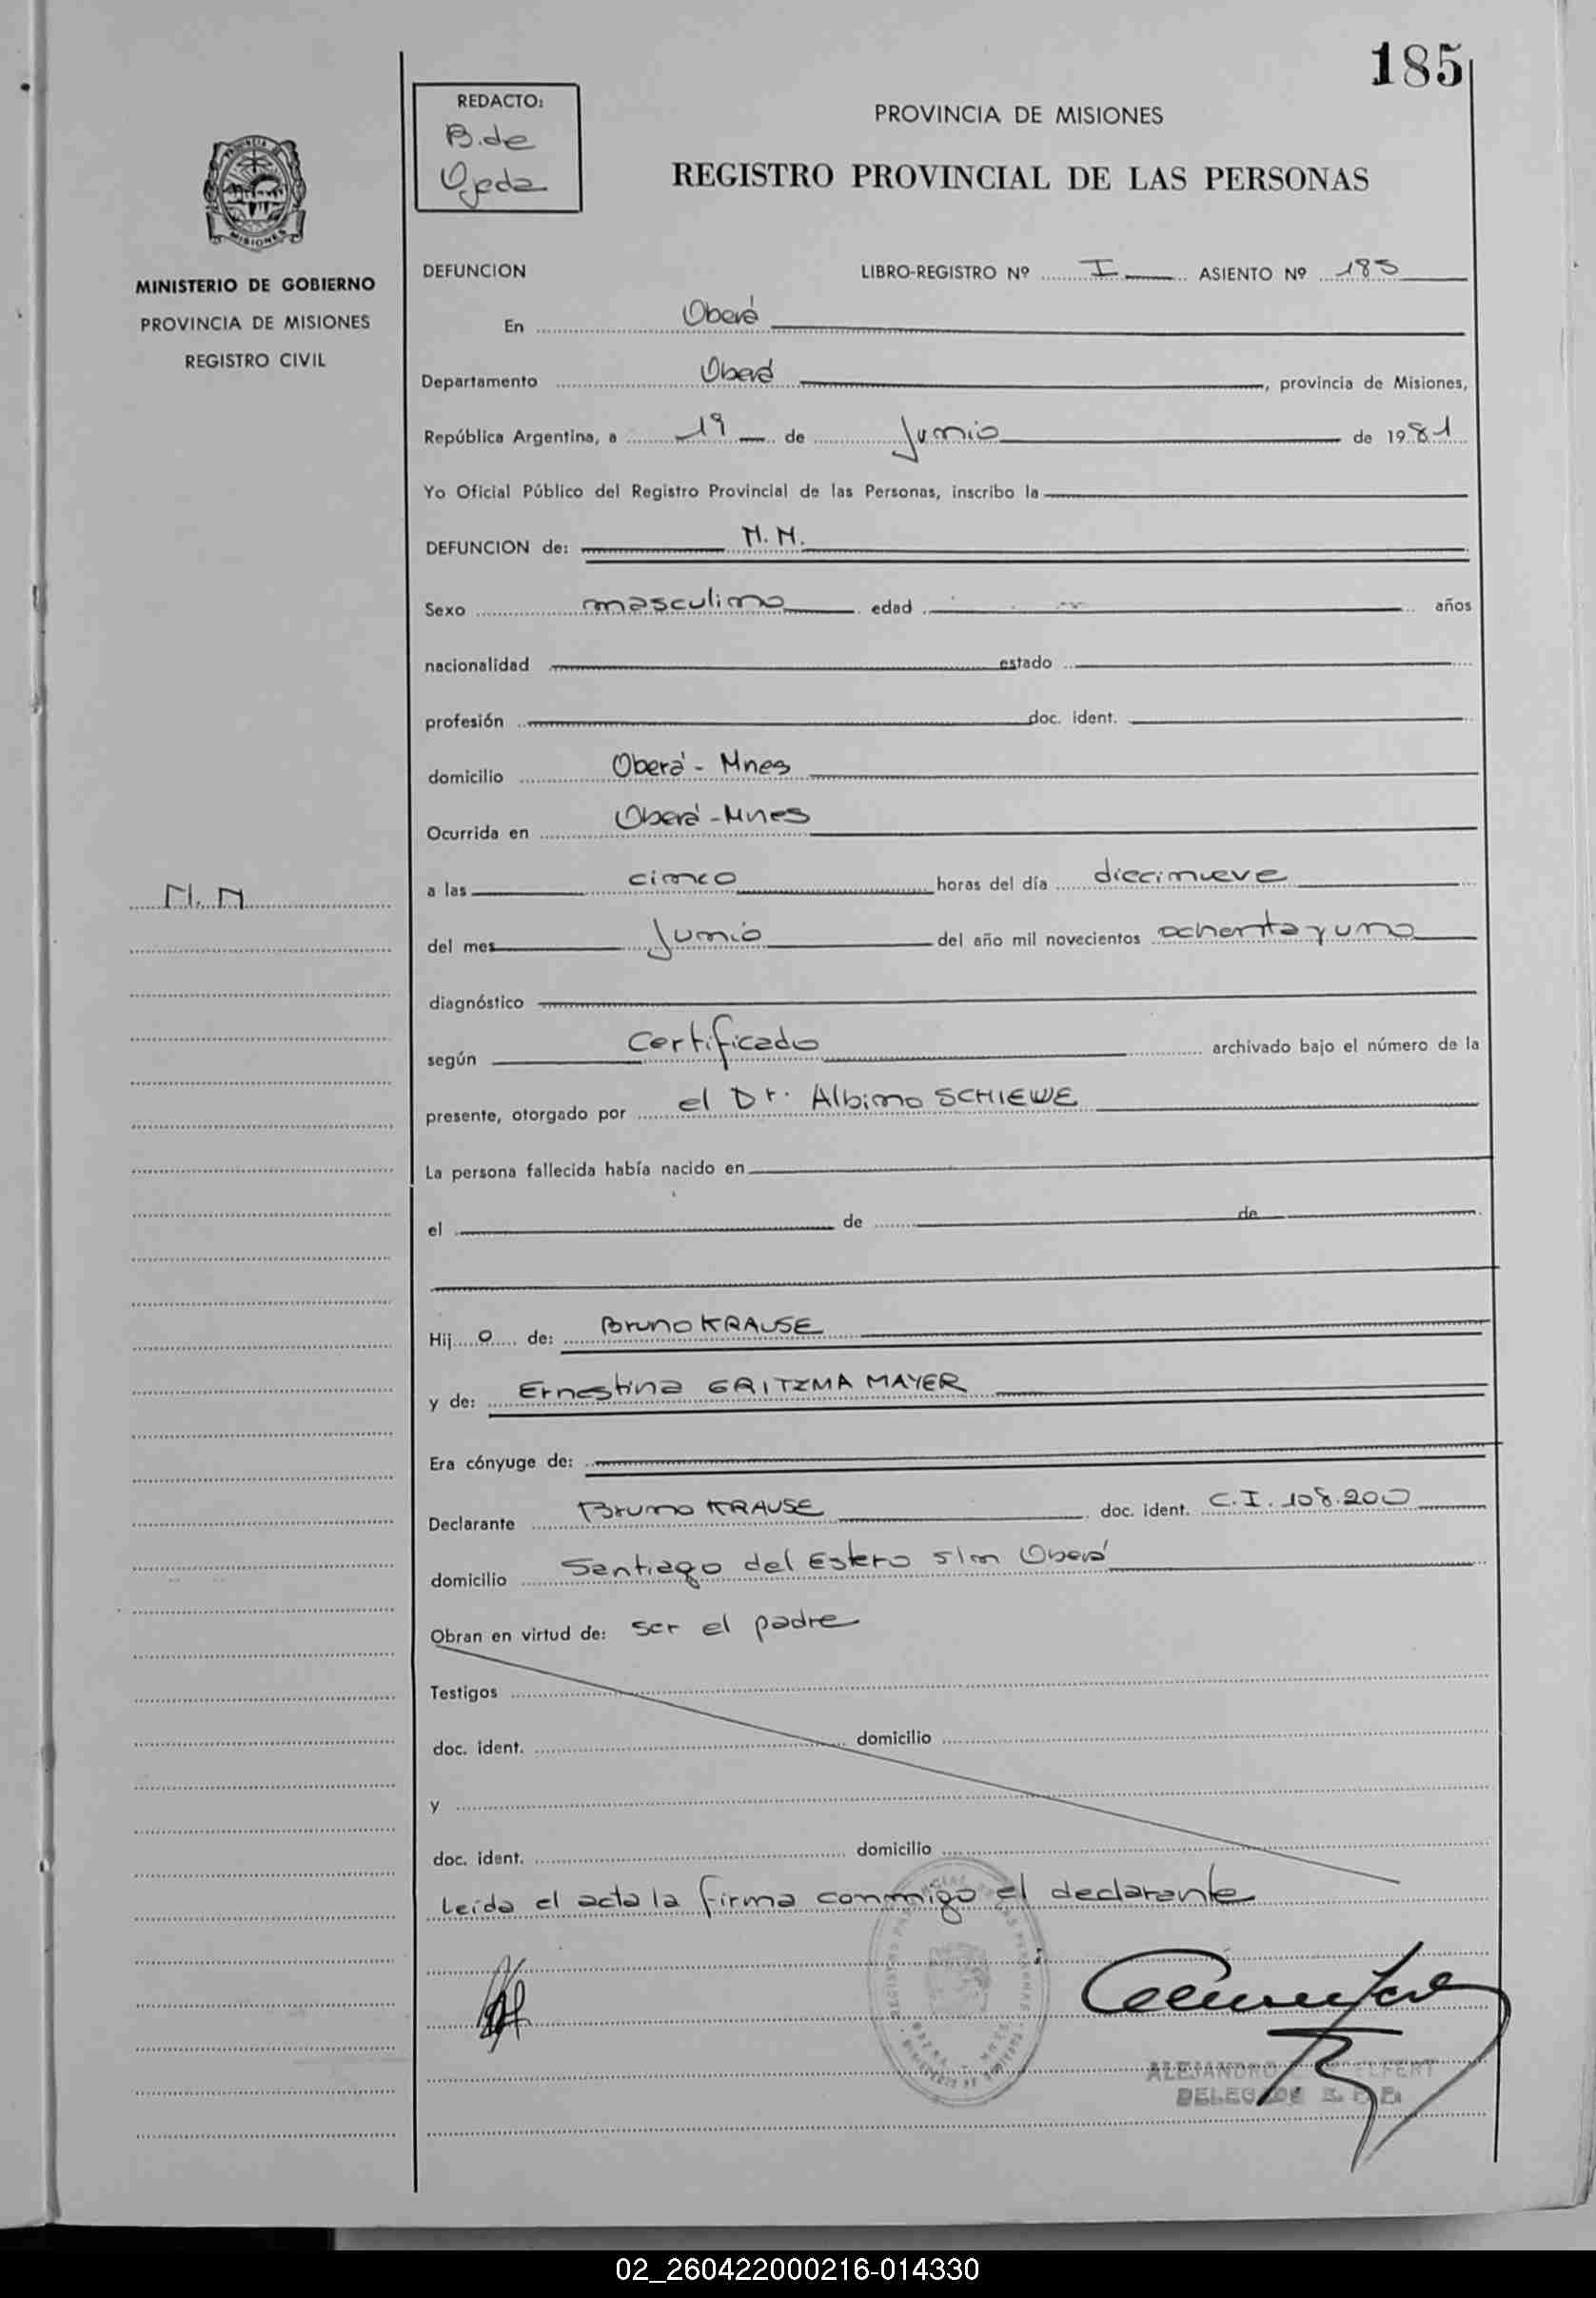 185
REDACTO:
B. de
Ojeda
PROVINCIA DE MISIONES
REGISTRO PROVINCIAL DE LAS PERSONAS
MINISTERIO DE GOBIERNO
PROVINCIA DE MISIONES
REGISTRO CIVIL
DEFUNCION LIBRO-REGISTRO Nº I ASIENTO Nº 185
En Oberá
Departamento Oberá, provincia de Misiones,
República Argentina, a 19 de Junio de 1981
Yo Oficial Público del Registro Provincial de las Personas, inscribo la
DEFUNCION de: N. N.
Sexo masculino edad años
nacionalidad estado
profesión doc. ident.
domicilio Oberá - Mnes
Ocurrida en Oberá - Mnes
N. N
a las cinco horas del día diecinueve
del mes Junio del año mil novecientos ochenta y uno
diagnóstico
según Certificado archivado bajo el número de la
presente, otorgado por el Dr. Albino SCHIEWE
La persona fallecida había nacido en
el de de
Hij o de: Bruno KRAUSE
y de: Ernestina GRITZMA MAYER
Era cónyuge de:
Declarante Bruno KRAUSE doc. ident. C.I. 108.200
domicilio Santiago del Estero s/n Oberá
Obran en virtud de: ser el padre
Testigos
doc. ident. domicilio
y
doc. ident. domicilio
Leída el acta la firma conmigo el declarante
ALEJANDRO
02_260422000216-014330